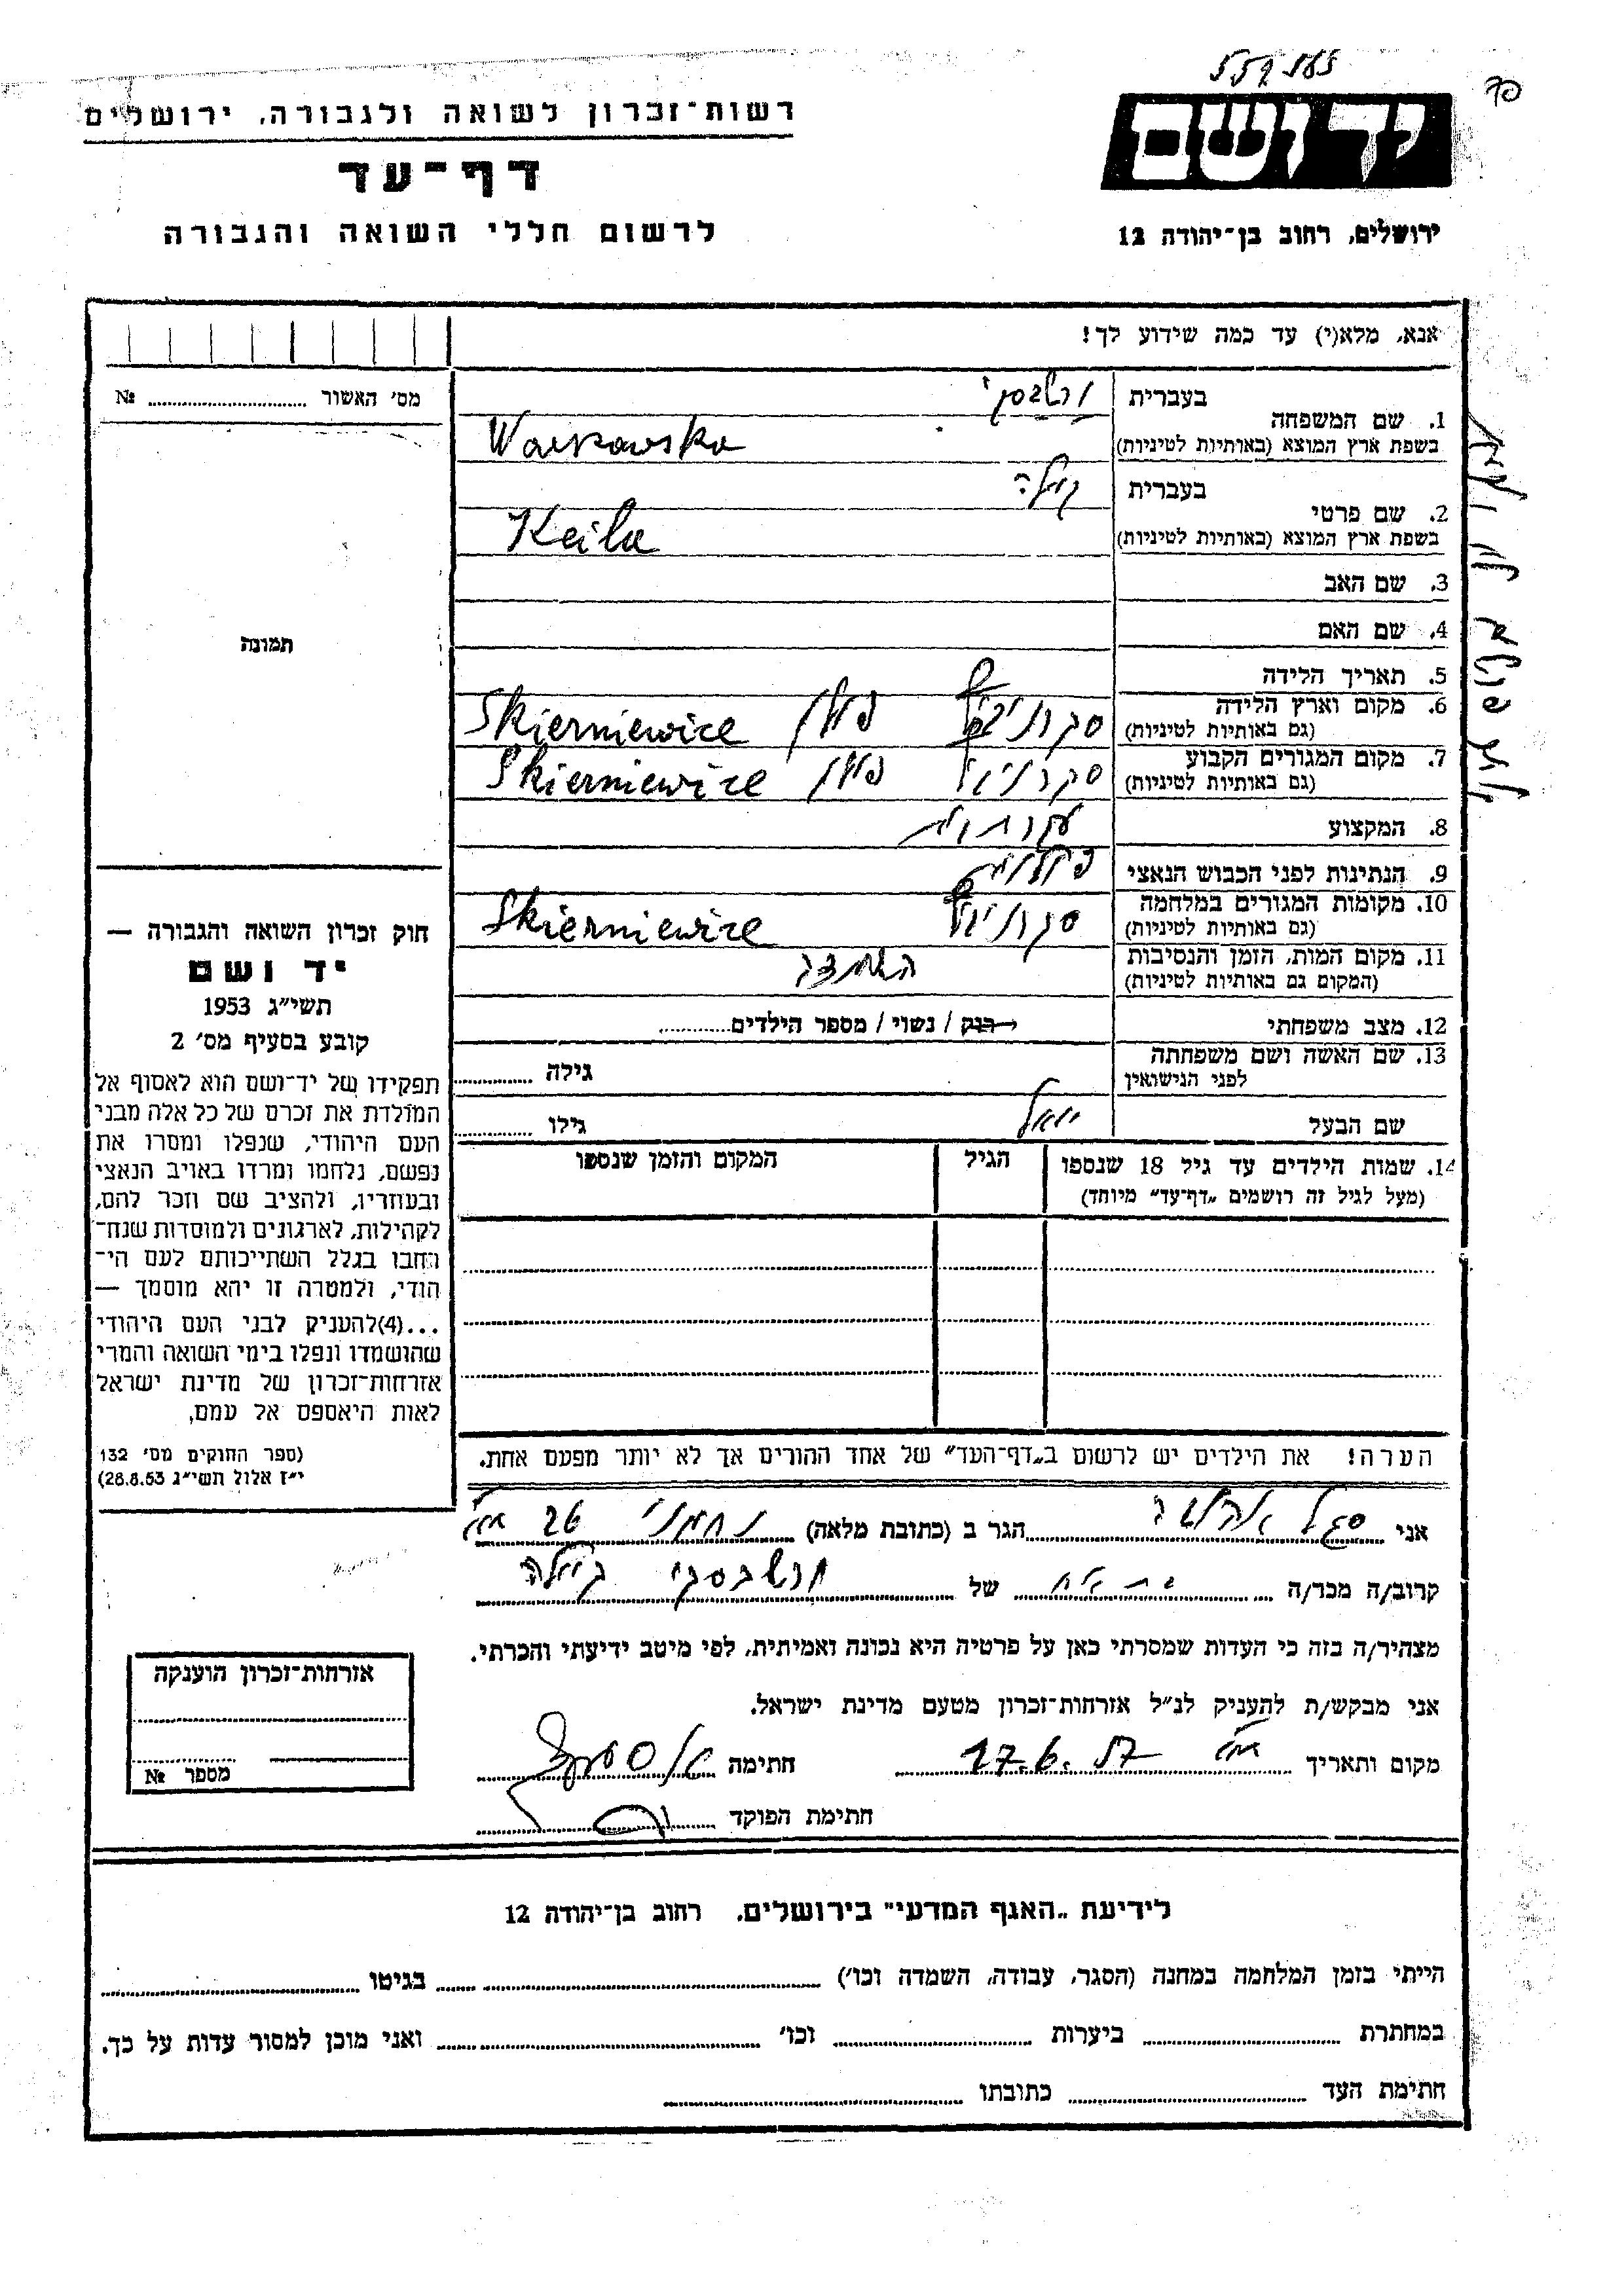 רשות-זכרון לשואה ולגבורה, ירושלים
דף-עד
לרשום חללי השואה והגבורה
יד ושם
ירושלים, רחוב בן-יהודה 12
אנא, מלא(י) עד כמה שידוע לך!
מס' האשור ........ №
תמונה
חוק זכרון השואה והגבורה —
יד ושם
תשי"ג 1953
קובע בסעיף מס' 2
תפקידו של יד-ושם הוא לאסוף אל
המולדת את זכרם של כל אלה מבני
העם היהודי, שנפלו ומסרו את
נפשם, נלחמו ומרדו באויב הנאצי
ובעוזריו, ולהציב שם וזכר להם,
לקהילות, לארגונים ולמוסדות שנח-
רבו בגלל השתייכותם לעם הי-
הודי, ולמטרה זו יהא מוסמך —
...(4)להעניק לבני העם היהודי
שהושמדו ונפלו בימי השואה והמרי
אזרחות-זכרון של מדינת ישראל
לאות היאספם אל עמם,
(ספר החוקים מס' 132
י"ז אלול תשי"ג 28.8.53)
1. שם המשפחה
בעברית ורשבסקי
בשפת ארץ המוצא (באותיות לטיניות) Warszawska
2. שם פרטי
בעברית קילה
בשפת ארץ המוצא (באותיות לטיניות) Keila
3. שם האב
4. שם האם
5. תאריך הלידה
6. מקום וארץ הלידה
(גם באותיות לטיניות) פולין Skierniewice
7. מקום המגורים הקבוע
(גם באותיות לטיניות) פולין Skierniewice
8. המקצוע
9. הנתינות לפני הכבוש הנאצי פולנית
10. מקומות המגורים במלחמה
(גם באותיות לטיניות) Skierniewice
11. מקום המות, הזמן והנסיבות
(המקום גם באותיות לטיניות) השמדה
12. מצב משפחתי רווק / נשוי / מספר הילדים........
13. שם האשה ושם משפחתה
לפני הנישואין גילה ........
שם הבעל גילו ........
14. שמות הילדים עד גיל 18 שנספו הגיל המקום והזמן שנספו
(מעל לגיל זה רושמים "דף-עד" מיוחד)
הערה! את הילדים יש לרשום ב"דף-העד" של אחד ההורים אך לא יותר מפעם אחת.
אני סגל הגר ב (כתובת מלאה) נחמני 26 ת"א
קרוב/ה מכר/ה של ורשבסקי קילה
מצהיר/ה בזה כי העדות שמסרתי כאן על פרטיה היא נכונה ואמיתית, לפי מיטב ידיעתי והכרתי.
אני מבקש/ת להעניק לנ"ל אזרחות-זכרון מטעם מדינת ישראל.
מקום ותאריך ת"א 17.6.57 חתימה
חתימת הפוקד
אזרחות-זכרון הוענקה
מספר №
לידיעת "האגף המדעי" בירושלים, רחוב בן-יהודה 12
הייתי בזמן המלחמה במחנה (הסגר, עבודה, השמדה וכו') ........ בגיטו ........
במחתרת ........ ביערות ........ וכו' ........ ואני מוכן למסור עדות על כך.
חתימת העד ........ כתובתו ........